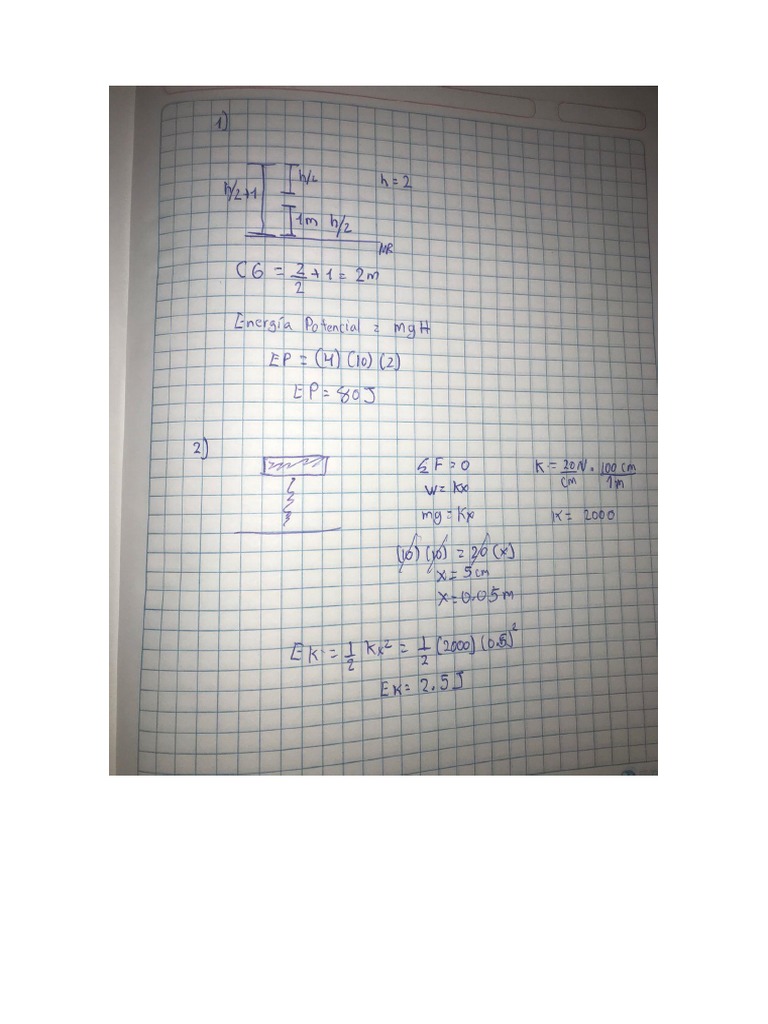 1)
h/2+1 h/2 h = 2
1m h/2
NR
CG = 2/2 + 1 = 2m
Energía Potencial = mgH
EP = (4) (10) (2)
EP = 80J
2)
Σ F = 0 K = 20N/cm . 100cm/1m
w = Kx
mg = Kx K = 2000
(10) (10) = 20 (x)
x = 5cm
x = 0.05m
EK = 1/2 Kx² = 1/2 (2000) (0.5)²
EK = 2.5J